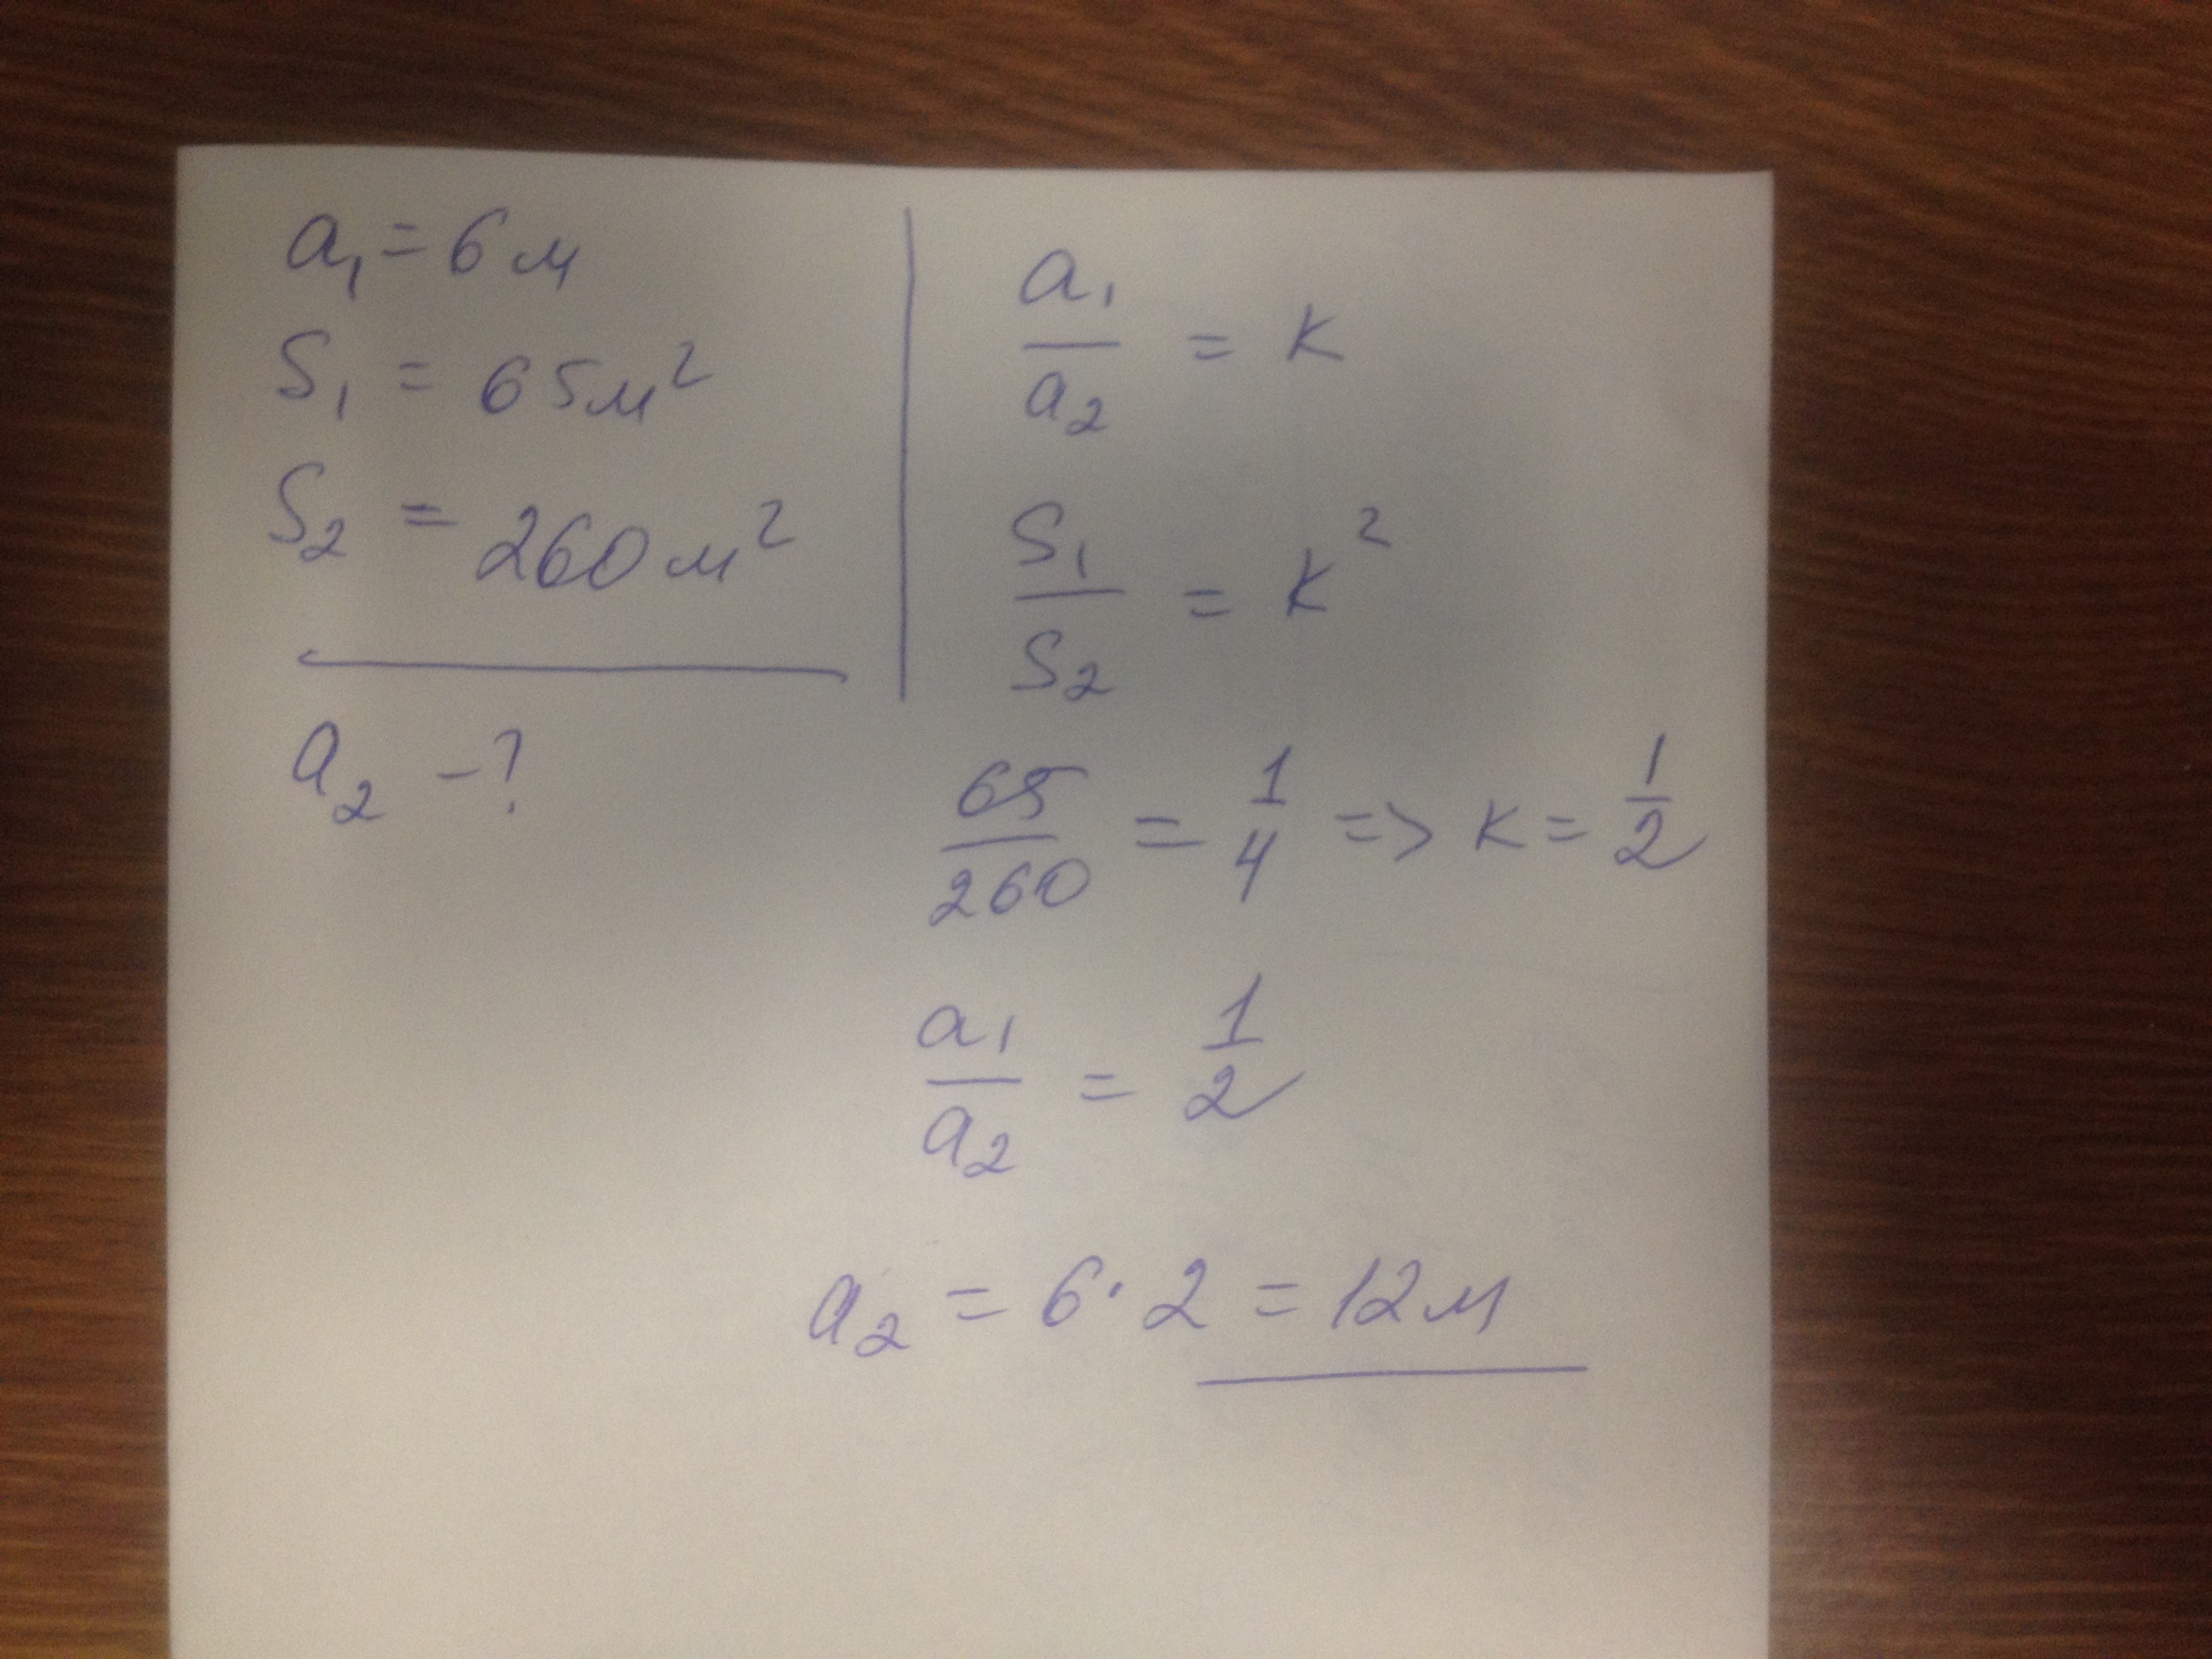 a₁ = 6 м
S₁ = 65 м²
S₂ = 260 м²
a₂ – ?
a₁/a₂ = k
S₁/S₂ = k²
65/260 = 1/4 => k = 1/2
a₁/a₂ = 1/2
a₂ = 6 · 2 = 12 м